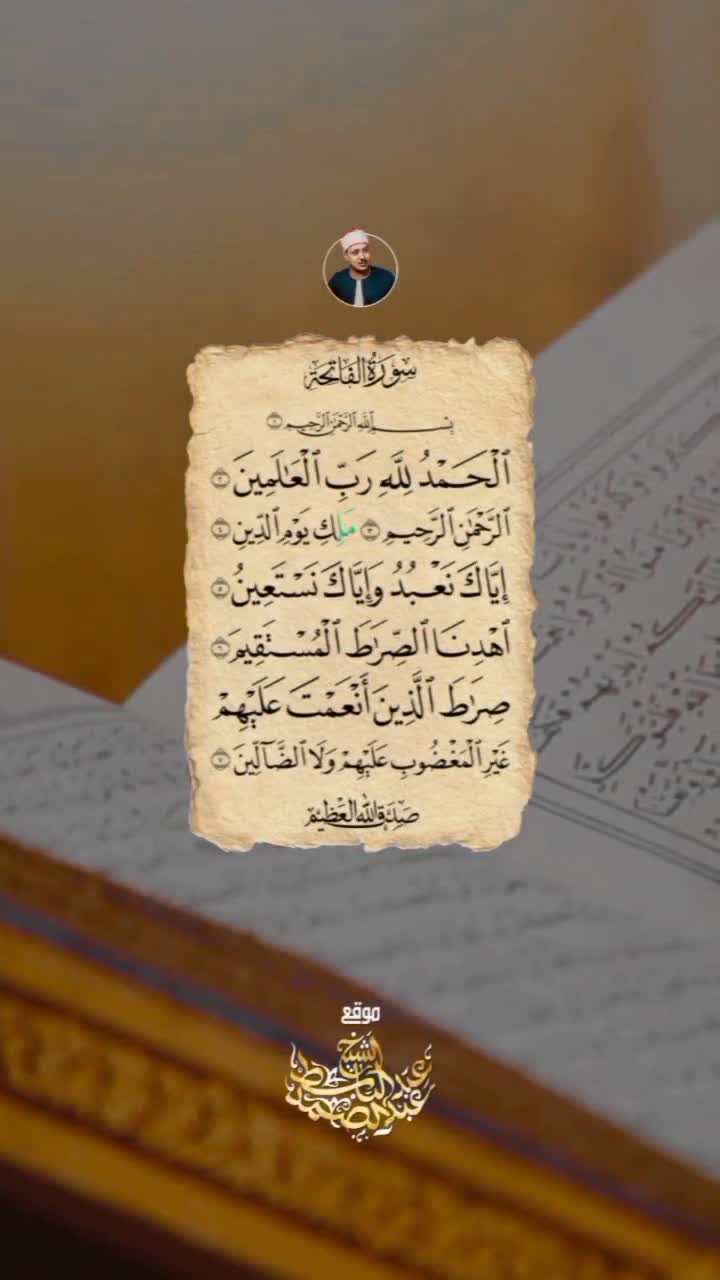 سُورَةُ الفَاتِحَة
بِسْمِ ٱللَّهِ ٱلرَّحْمَٰنِ ٱلرَّحِيمِ ١
ٱلْحَمْدُ لِلَّهِ رَبِّ ٱلْعَٰلَمِينَ ٢
ٱلرَّحْمَٰنِ ٱلرَّحِيمِ ٣ مَٰلِكِ يَوْمِ ٱلدِّينِ ٤
إِيَّاكَ نَعْبُدُ وَإِيَّاكَ نَسْتَعِينُ ٥
ٱهْدِنَا ٱلصِّرَٰطَ ٱلْمُسْتَقِيمَ ٦
صِرَٰطَ ٱلَّذِينَ أَنْعَمْتَ عَلَيْهِمْ
غَيْرِ ٱلْمَغْضُوبِ عَلَيْهِمْ وَلَا ٱلضَّآلِّينَ ٧
صَدَقَ اللَّهُ العَظِيمُ
موقع
الشيخ
عبد الباسط
عبد الصمد